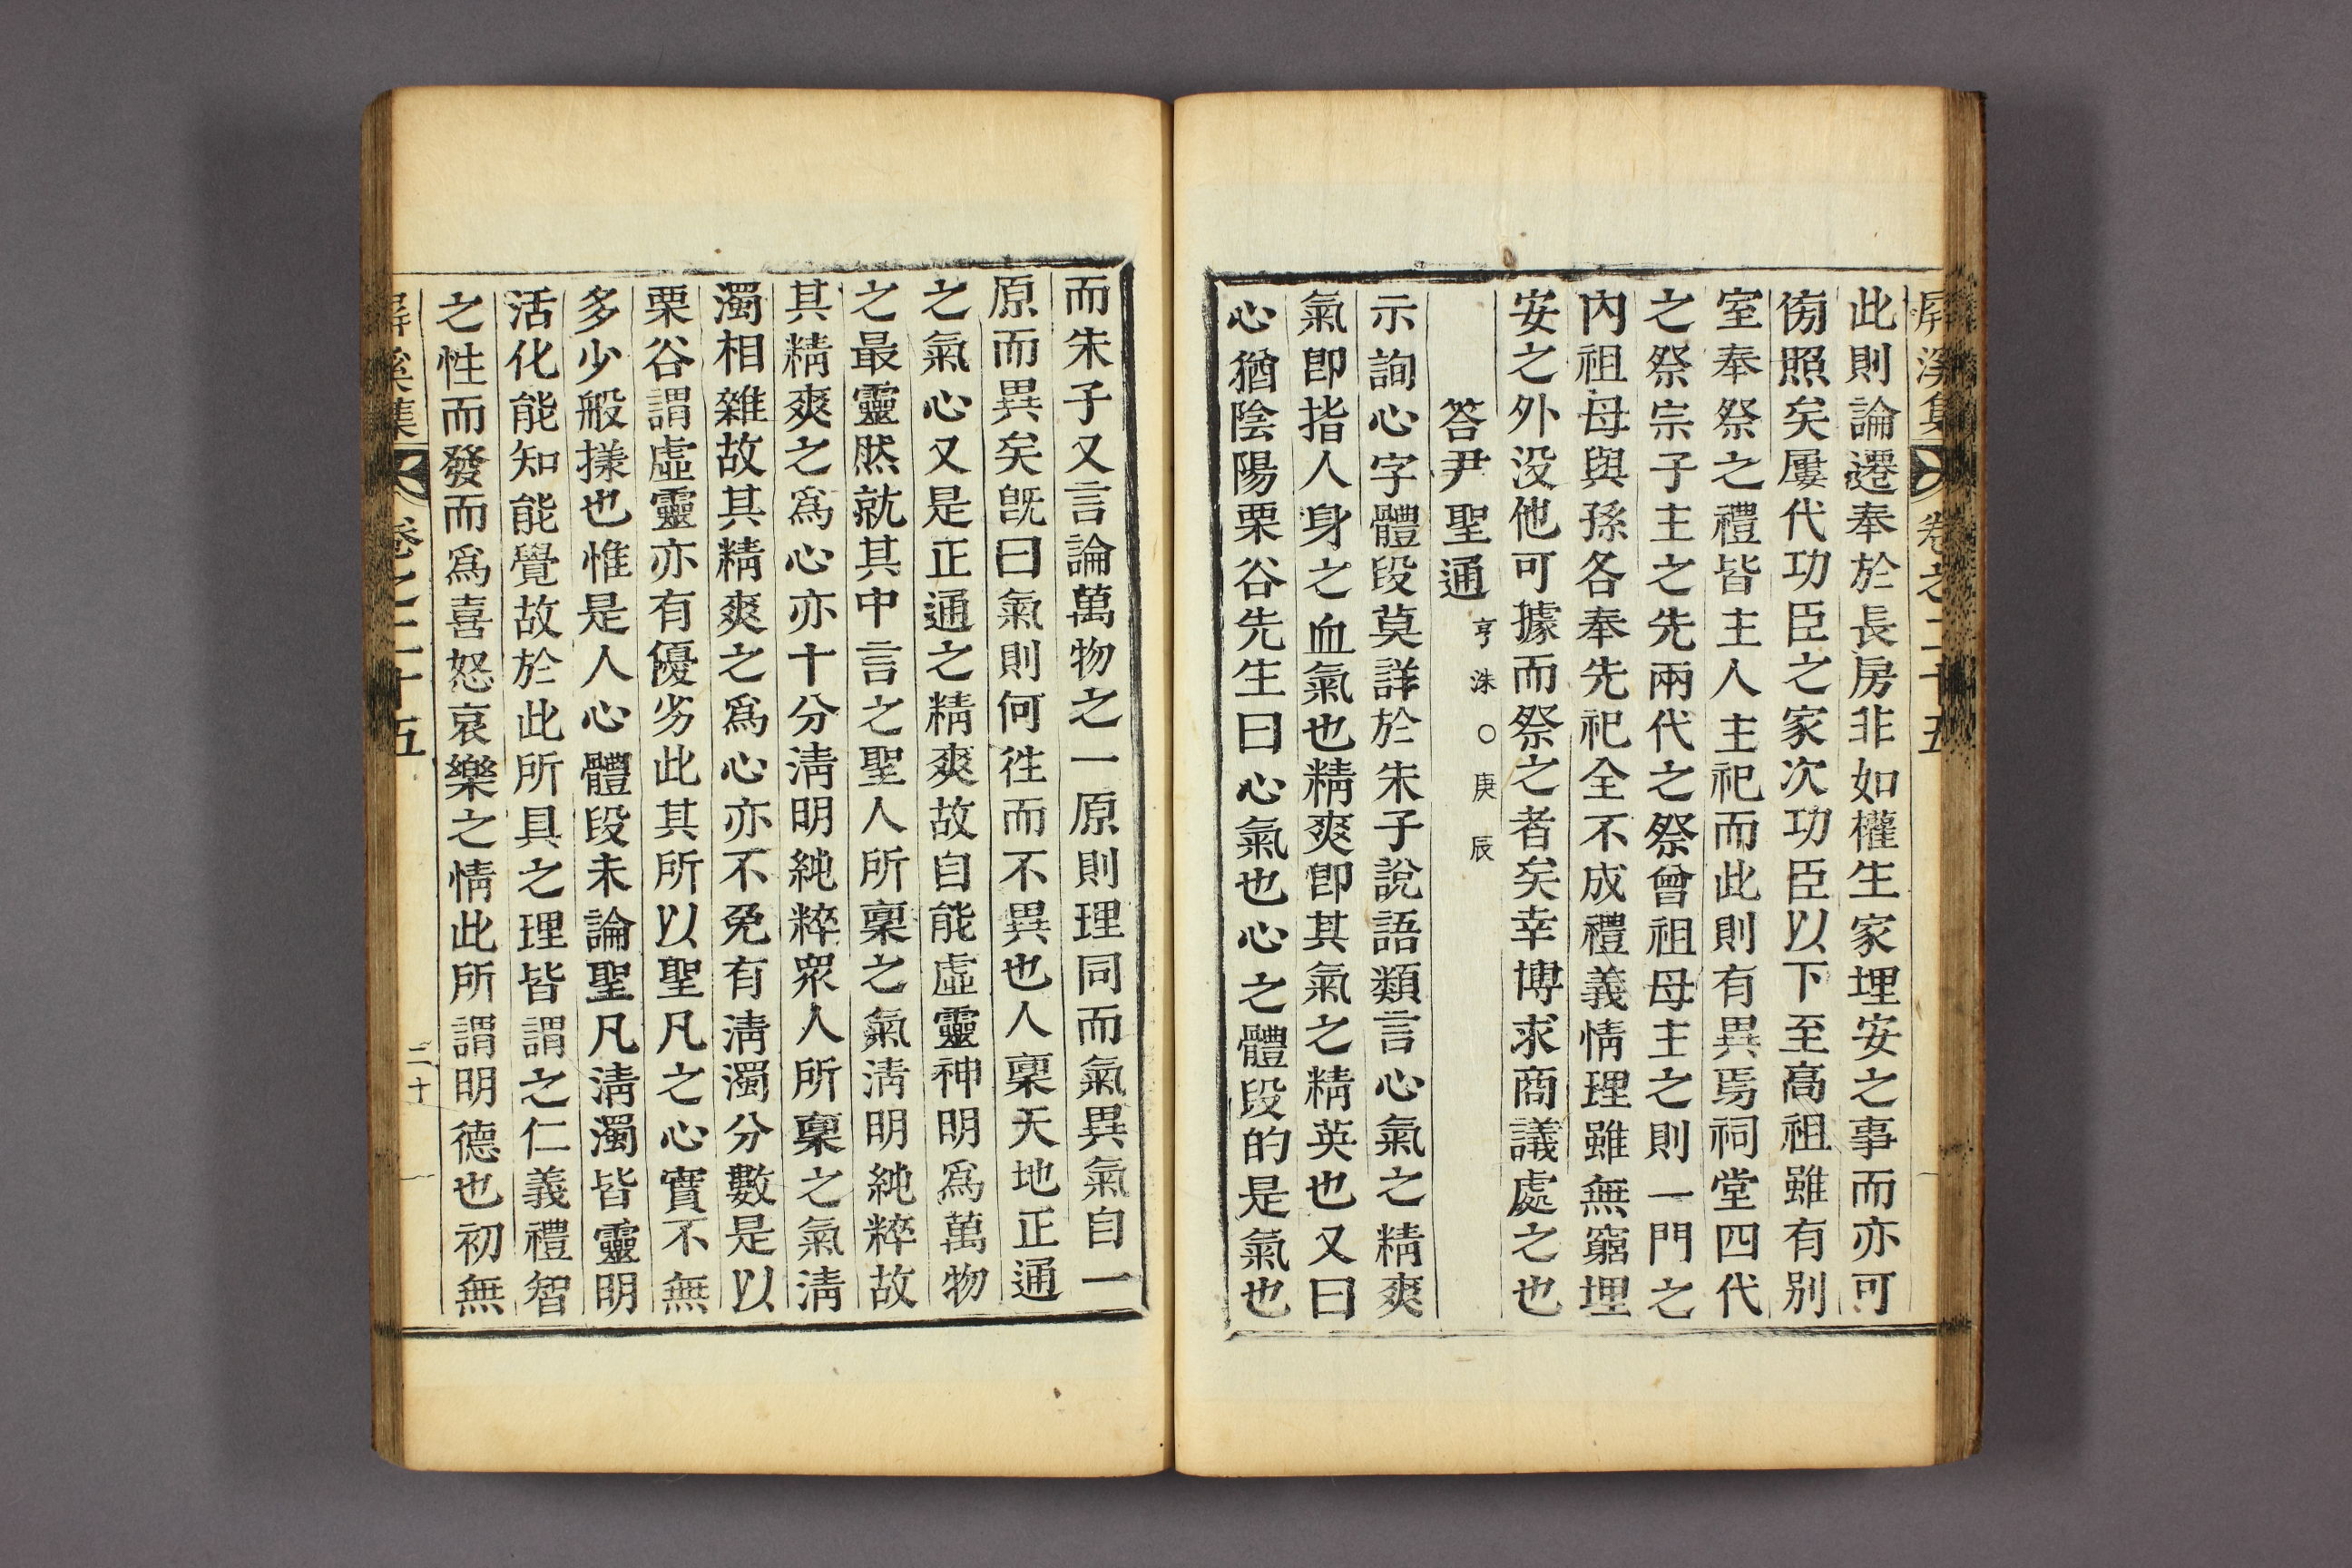 屛溪集 卷之二十五
此則論遷奉於長房非如權生家埋安之事而亦可
傍照矣屢代功臣之家次功臣以下至高祖雖有別
室奉祭之禮皆主人主祀而此則有異焉祠堂四代
之祭宗子主之先兩代之祭曾祖母主之則一門之
內祖母與孫各奉先祀全不成禮義情理雖無窮埋
安之外没他可據而祭之者矣幸博求商議處之也
答尹聖通 亨洙○庚辰
示詢心字體段莫詳於朱子說語類言心氣之精爽
氣卽指人身之血氣也精爽卽其氣之精英也又曰
心猶陰陽栗谷先生曰心氣也心之體段的是氣也
而朱子又言論萬物之一原則理同而氣異氣自一
原而異矣旣曰氣則何徃而不異也人稟天地正通
之氣心又是正通之精爽故自能虛靈神明爲萬物
之最靈然就其中言之聖人所稟之氣淸明純粹故
其精爽之爲心亦十分淸明純粹衆人所稟之氣淸
濁相雜故其精爽之爲心亦不免有淸濁分數是以
栗谷謂虛靈亦有優劣此其所以聖凡之心實不無
多少般㨾也惟是人心體段未論聖凡淸濁皆靈明
活化能知能覺故於此所具之理皆謂之仁義禮智
之性而發而爲喜怒哀樂之情此所謂明德也初無
屛溪集 卷之二十五 二十